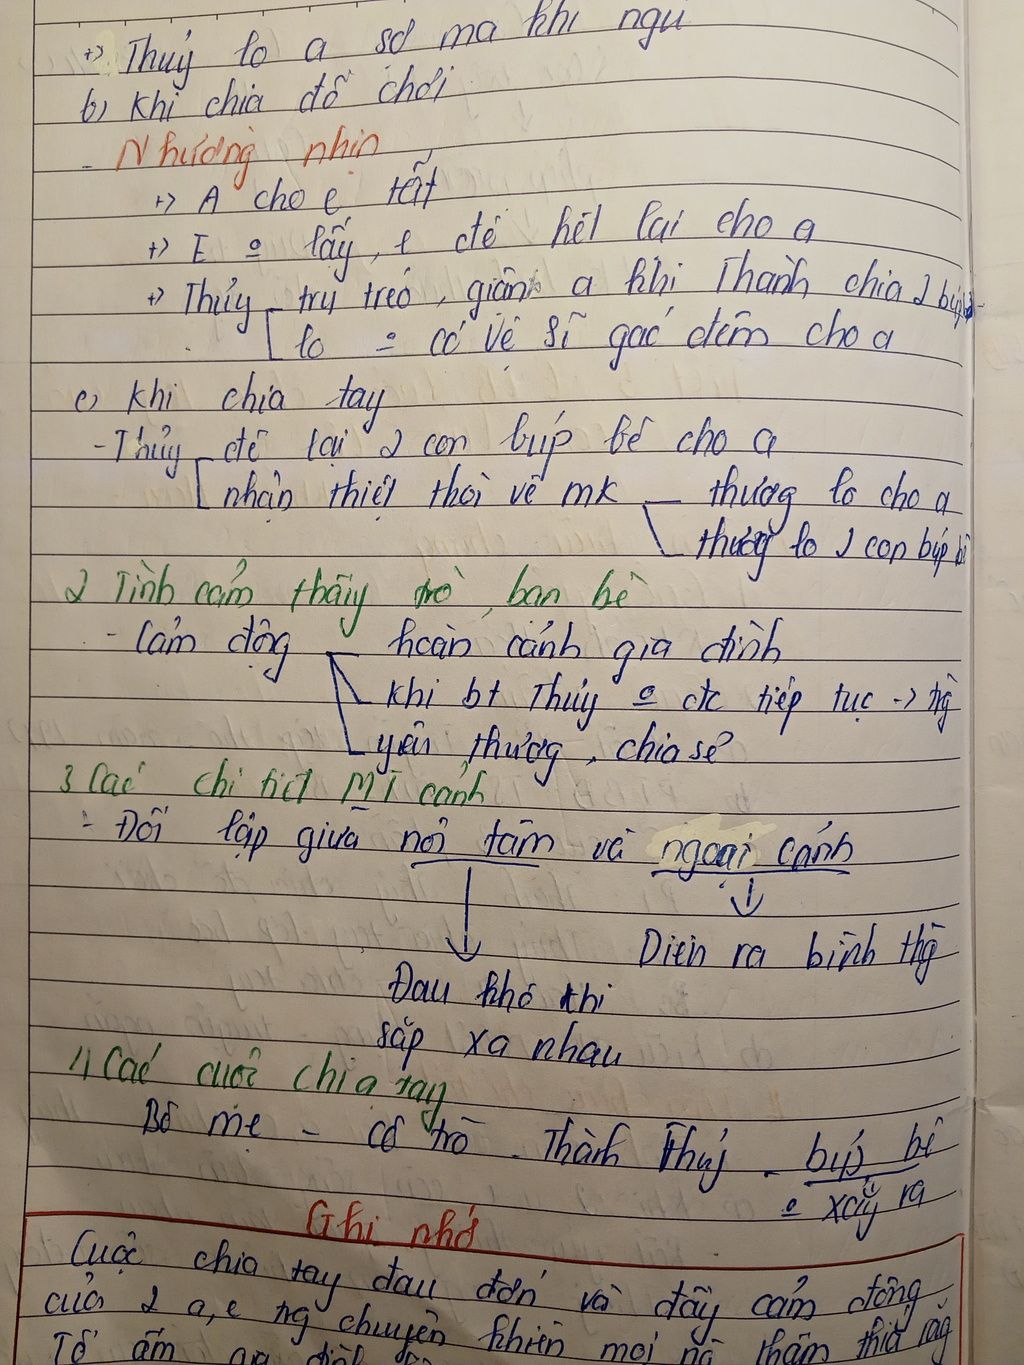 +> Thuỷ lo a sợ ma khi ngủ
b) Khi chia đồ chơi
- Nhường nhịn
+> A cho e tất
+> E o lấy, e để hết lại cho a
+> Thủy trụ tréo, giận a khi Thành chia 2 búp bê
lo o có vệ sĩ gác đêm cho a
c) Khi chia tay
- Thủy để lại 2 con búp bê cho a
nhận thiệt thòi về mk - thương lo cho a
thương lo 2 con búp bê
2 Tình cảm thầy trò, bạn bè
- Cảm động hoàn cảnh gia đình
khi bt Thủy o đc tiếp tục ->
yêu thương, chia sẻ
3 Các chi tiết MT cảnh
- Đối lập giữa nội tâm và ngoại cảnh
Diễn ra bình thg
Đau khổ khi
sắp xa nhau
4) Các cuộc chia tay
Bố mẹ - cô trò - Thành Thủy - búp bê
o xảy ra
Ghi nhớ
Cuộc chia tay đau đớn và đầy cảm động
của 2 a, e trg chuyện khiến mọi ng thấm thía rằg
Tổ ấm gia đình